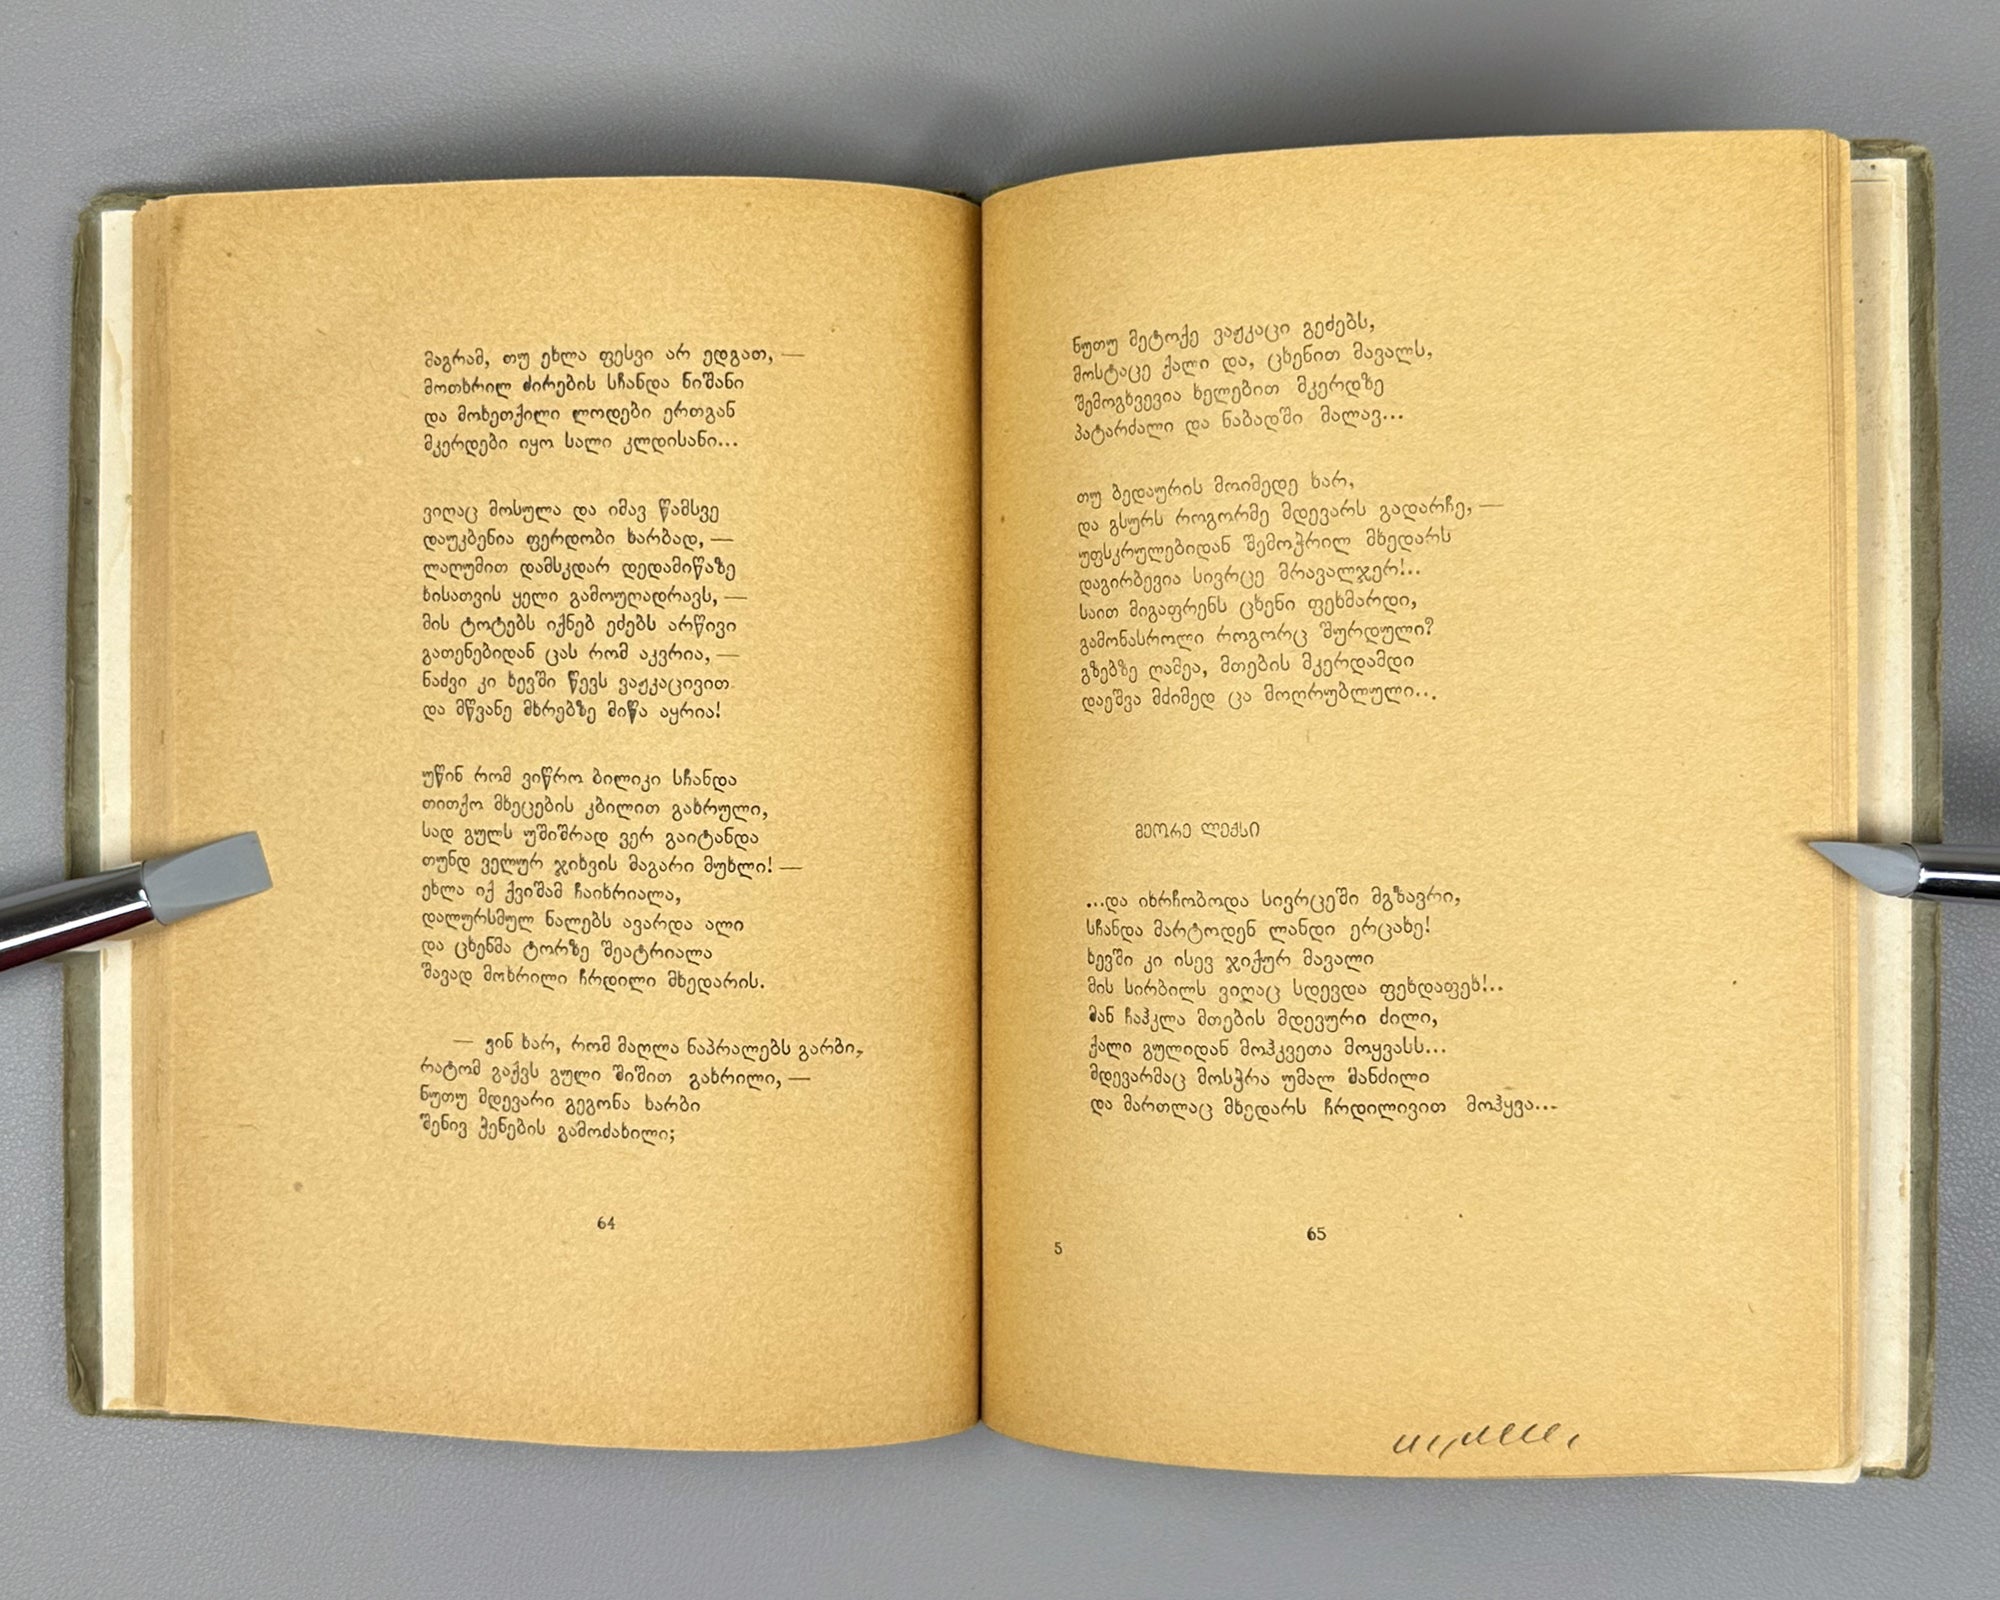 მაგრამ, თუ ეხლა ფესვი არ ედგათ, —
მოთხრილ ძირების სჩანდა ნიშანი
და მოხეთქილი ლოდები ერთგან
მკერდები იყო სალი კლდისანი...
ვიღაც მოსულა და იმავ წამსვე
დაუკბენია ფერდობი ხარბად, —
ლაღუმით დამსკდარ დედამიწაზე
ხისათვის ყელი გამოუღადრავს, —
მის ტოტებს იქნებ ეძებს არწივი
გათენებიდან ცას რომ აკვრია, —
ნაძვი კი ხევში წევს ვაჟკაცივით
და მწვანე მხრებზე მიწა აყრია!
უწინ რომ ვიწრო ბილიკი სჩანდა
თითქო მხეცების კბილით გახრული,
სად გულს უშიშრად ვერ გაიტანდა
თუნდ ველურ ჯიხვის მაგარი მუხლი! —
ეხლა იქ ქვიშამ ჩაიხრიალა,
დალურსმულ ნალებს ავარდა ალი
და ცხენმა ტორზე შეატრიალა
შავად მოხრილი ჩრდილი მხედარის.
— ვინ ხარ, რომ მაღლა ნაპრალებს გარბი,
რატომ გაქვს გული შიშით გახრილი, —
ნუთუ მდევარი გეგონა ხარბი
შენივ ჭენების გამოძახილი;
64
ნუთუ მეტოქე ვაჟკაცი გეძებს,
მოსტაცე ქალი და, ცხენით მავალს,
შემოგხვევია ხელებით მკერდზე
პატარძალი და ნაბადში მალავ...
თუ ბედაურის მოიმედე ხარ,
და გსურს როგორმე მდევარს გადარჩე, —
უფსკრულებიდან შემოჭრილ მხედარს
დაგირბევია სივრცე მრავალჯერ!..
საით მიგაფრენს ცხენი ფეხმარდი,
გამონასროლი როგორც შურდული?
გზებზე ღამეა, მთების მკერდამდი
დაეშვა მძიმედ ცა მოღრუბლული...
მეორე ლექსი
...და იხრჩობოდა სივრცეში მგზავრი,
სჩანდა მარტოდენ ლანდი ერცახე!
ხევში კი ისევ ჯიქურ მავალი
მის სირბილს ვიღაც სდევდა ფეხდაფეხ!..
მან ჩაჰკლა მთების მდევური ძილი,
ქალი გულიდან მოჰკვეთა მოყვასს...
მდევარმაც მოსჭრა უმალ მანძილი
და მართლაც მხედარს ჩრდილივით მოჰყვა...
65
5